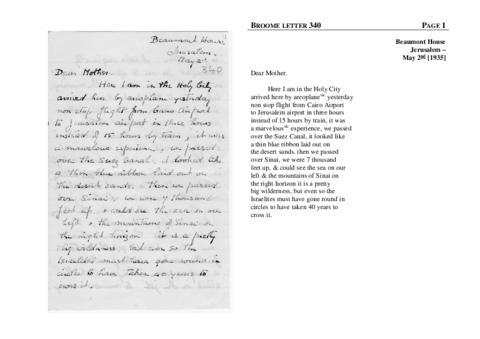 Beaumont House
Jerusalem.
May 2nd
340
Dear Mother.
Here I am in the Holy City
arrived here by aeroplane yesterday
non stop flight from Cairo Airport
to Jerusalem airport in three hours
instead of 15 hours by train, it was
a marvelous experience, we passed
over the Suez Canal, it looked like
a thin blue ribbon laid out on
the desert sands. then we passed
over Sinai, we were 7 thousand
feet up, & could see the sea on our
left & the mountains of Sinai on
the right horizon it is a pretty
big wilderness, but even so the
Israelites must have gone round in
circles to have taken 40 years to
cross it.
BROOME LETTER 340 PAGE 1
Beaumont House
Jerusalem –
May 2nd [1935]
Dear Mother.
Here I am in the Holy City
arrived here by areoplane yesterday
non stop flight from Cairo Airport
to Jerusalem airport in three hours
instead of 15 hours by train, it was
a marvelous experience, we passed
over the Suez Canal, it looked like
a thin blue ribbon laid out on
the desert sands, then we passed
over Sinai, we were 7 thousand
feet up, & could see the sea on our
left & the mountains of Sinai on
the right horizon it is a pretty
big wilderness, but even so the
Israelites must have gone round in
circles to have taken 40 years to
cross it.